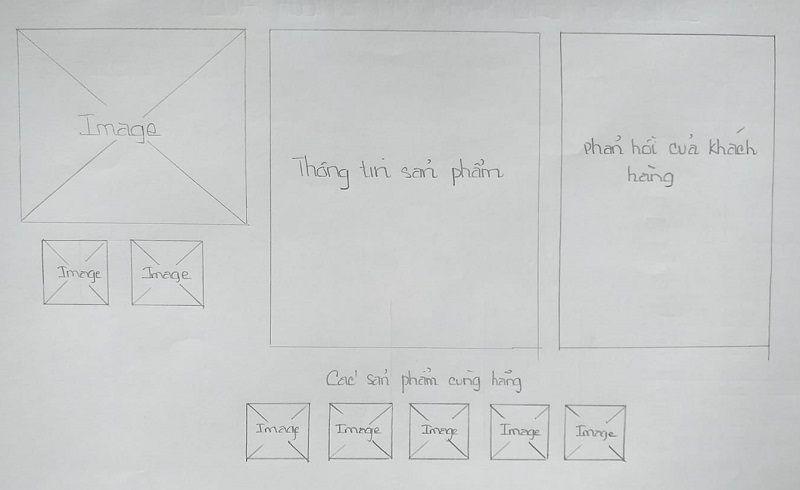 Image
Image
Image
Thông tin sản phẩm
phản hồi của khách
hàng
Các sản phẩm cùng hãng
Image
Image
Image
Image
Image